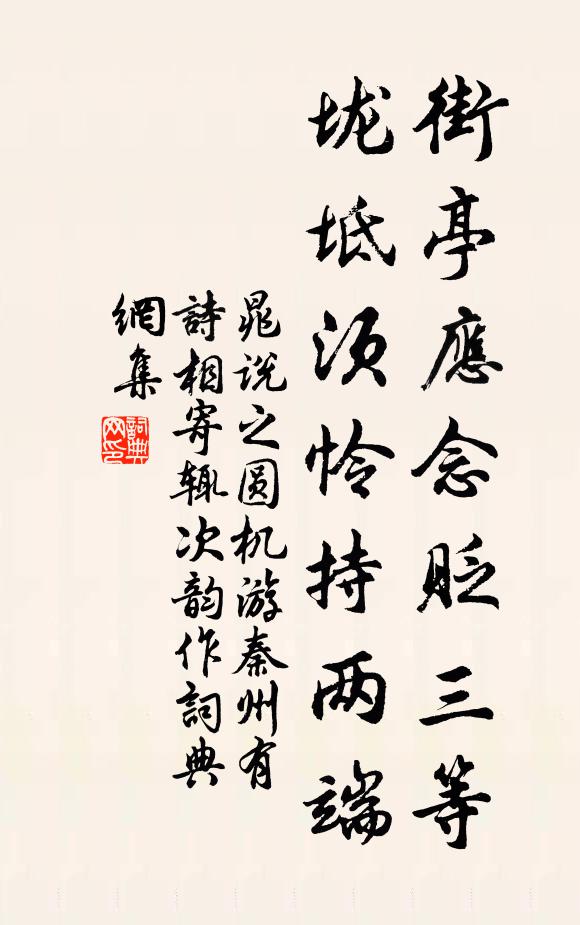 街亭應念眨三等
垅坻须怜持两端
晁说之圆机游秦州有
詩相寄辄次韵作詞典
網集
詞典
网印